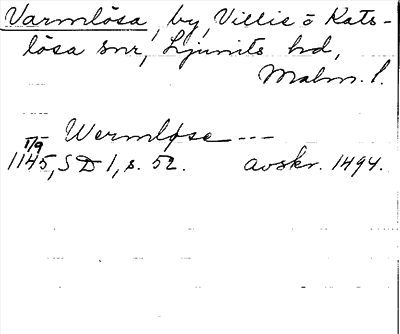 Varmlösa, by, Villie o Kats-
lösa snr, Ljunits hd,
Malm. l.
Wermløse ---
1/9
1145, SD 1, s. 52. avskr. 1494.